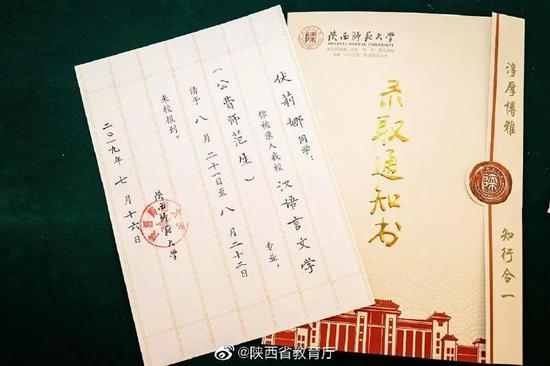 伏莉娜同学：
你被录入我校汉语言文学
（公费师范生）专业，
请于八月二十一日至八月二十二日
来校报到。
陕西师范大学
二〇一九年七月十六日
陕西师范大学
SHAANXI NORMAL UNIVERSITY
录取通知书
淳厚博雅
知行合一
@陕西省教育厅